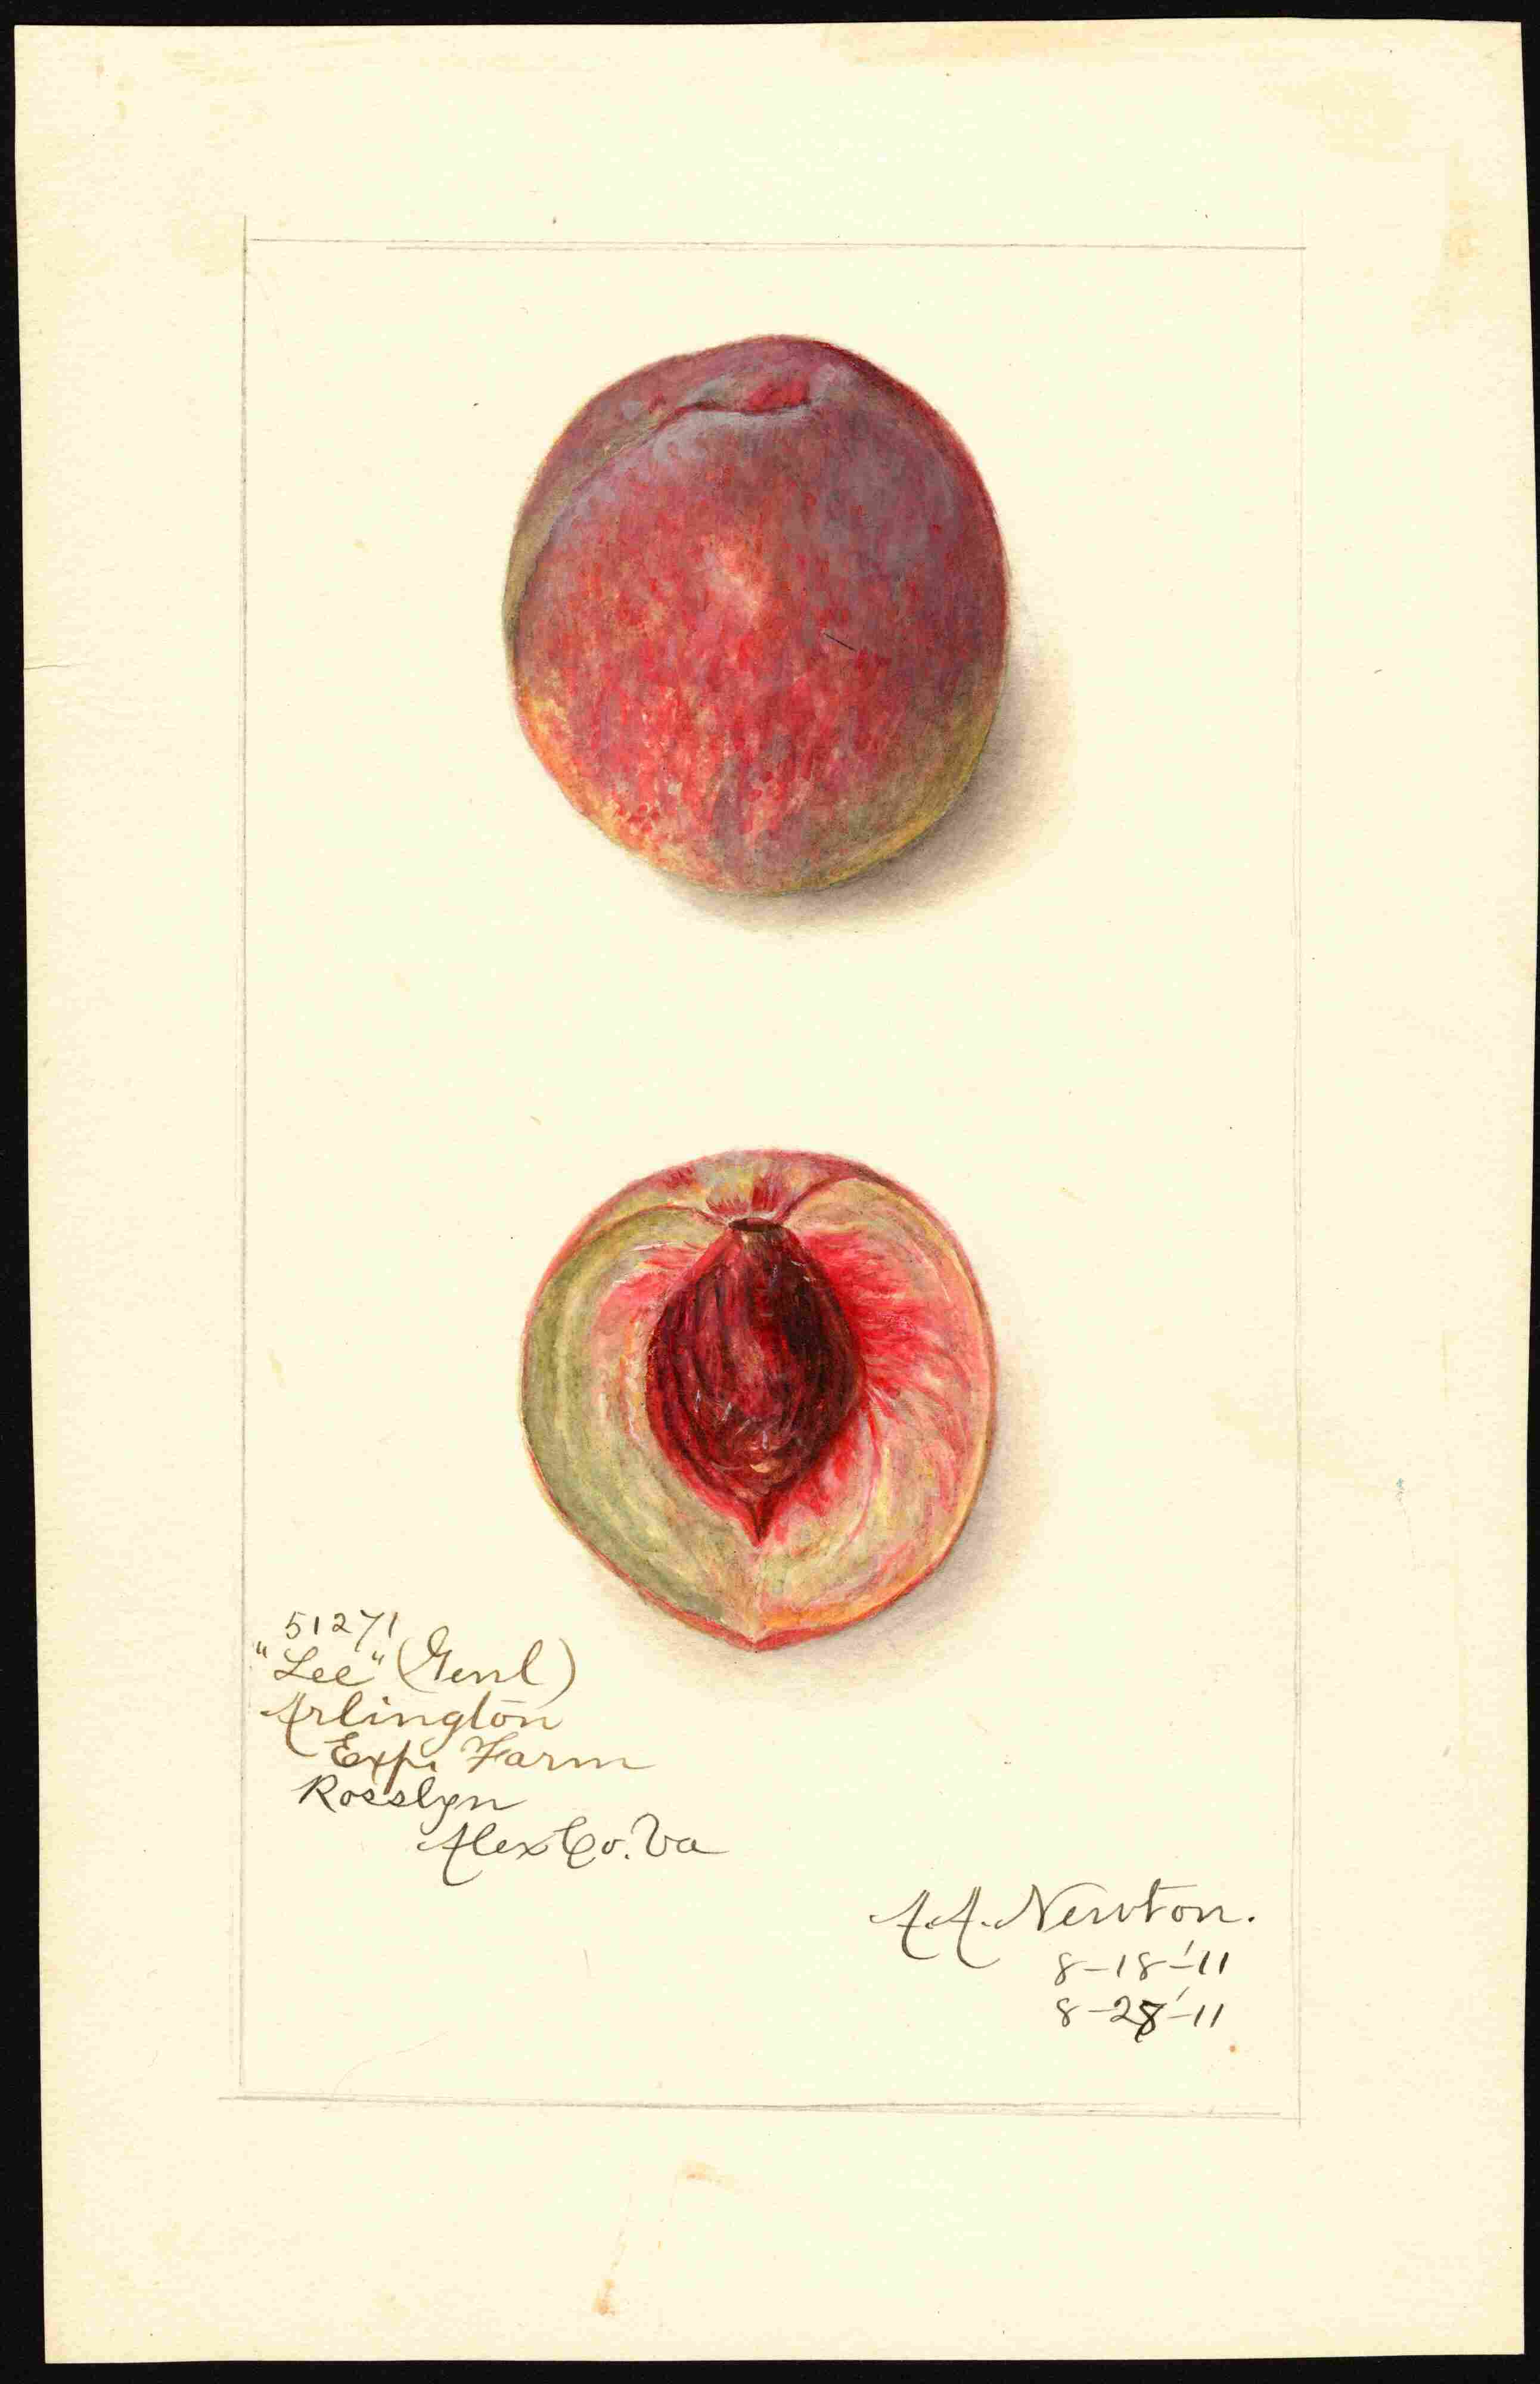 51271
"Lee" (Genl)
Arlington
Exp. Farm
Rosslyn
Alex Co. Va
A.A. Newton.
8-18-'11
8-28'-11